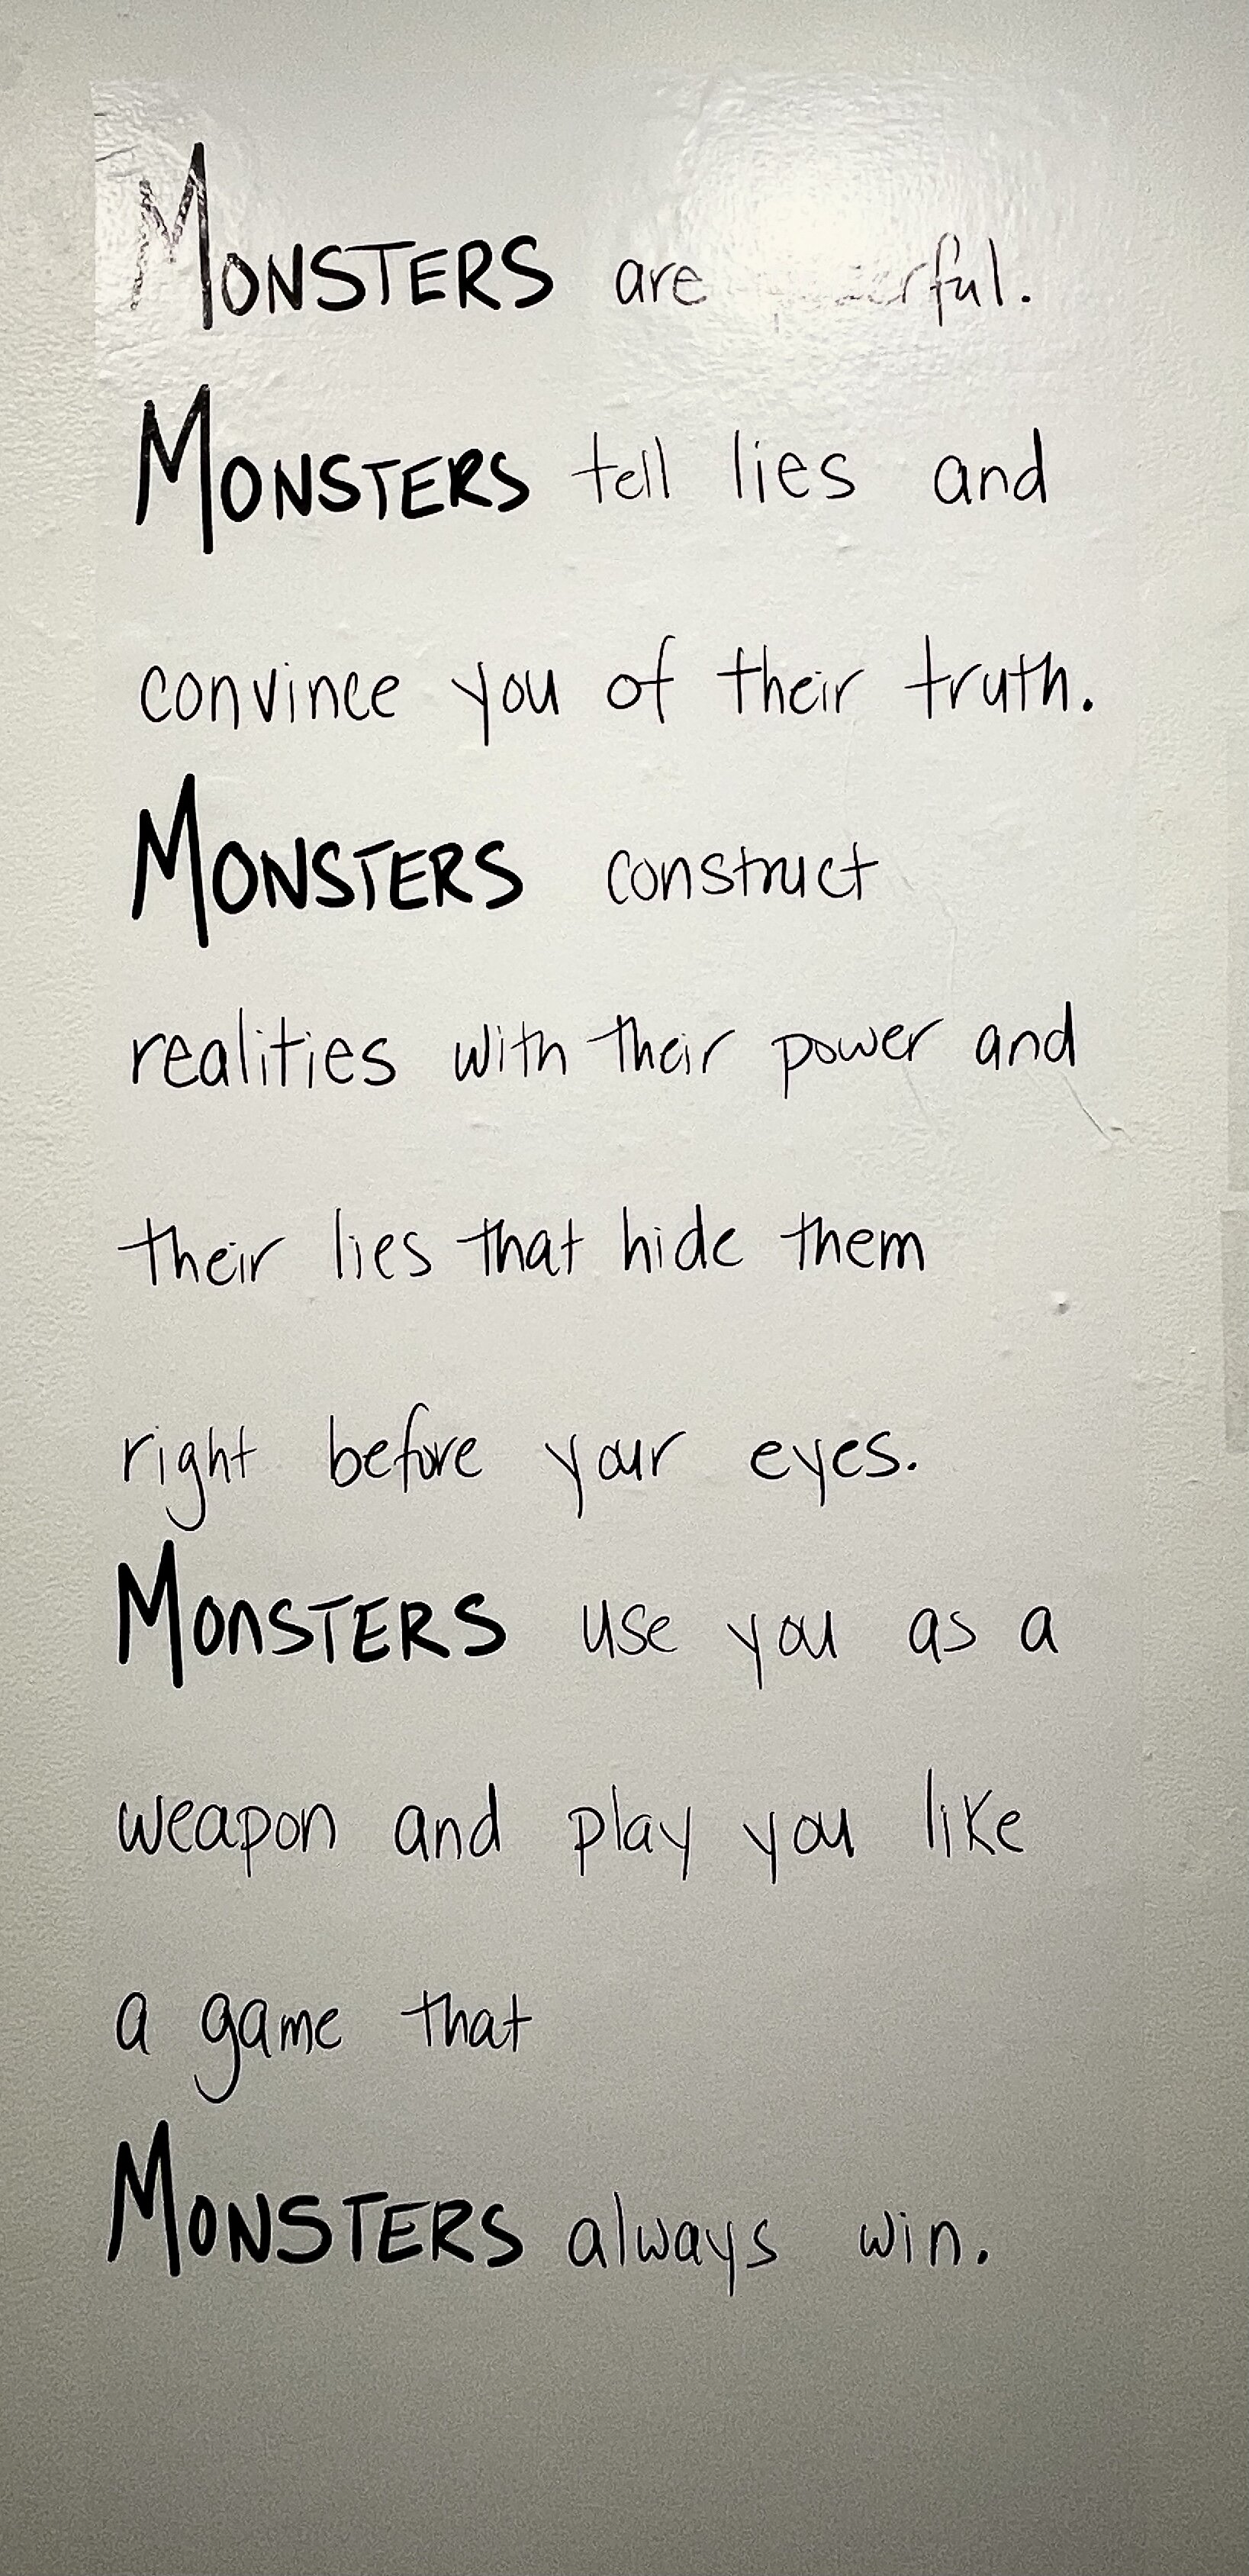 MONSTERS are powerful.
MONSTERS tell lies and
convince you of their truth.
MONSTERS construct
realities with their power and
their lies that hide them
right before your eyes.
MONSTERS use you as a
weapon and play you like
a game that
MONSTERS always win.